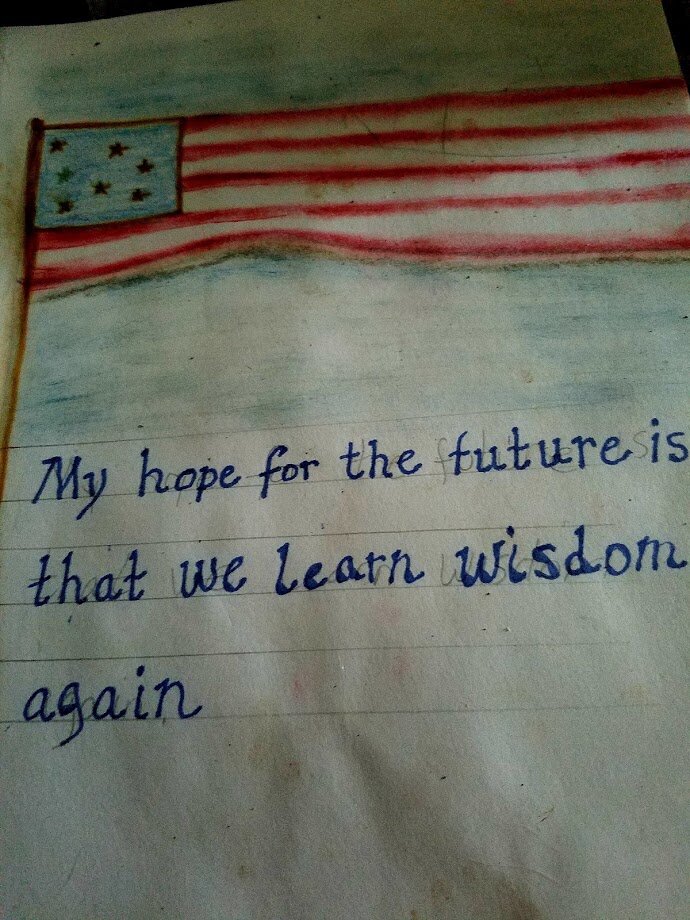 My hope for the future is
that we learn wisdom
again